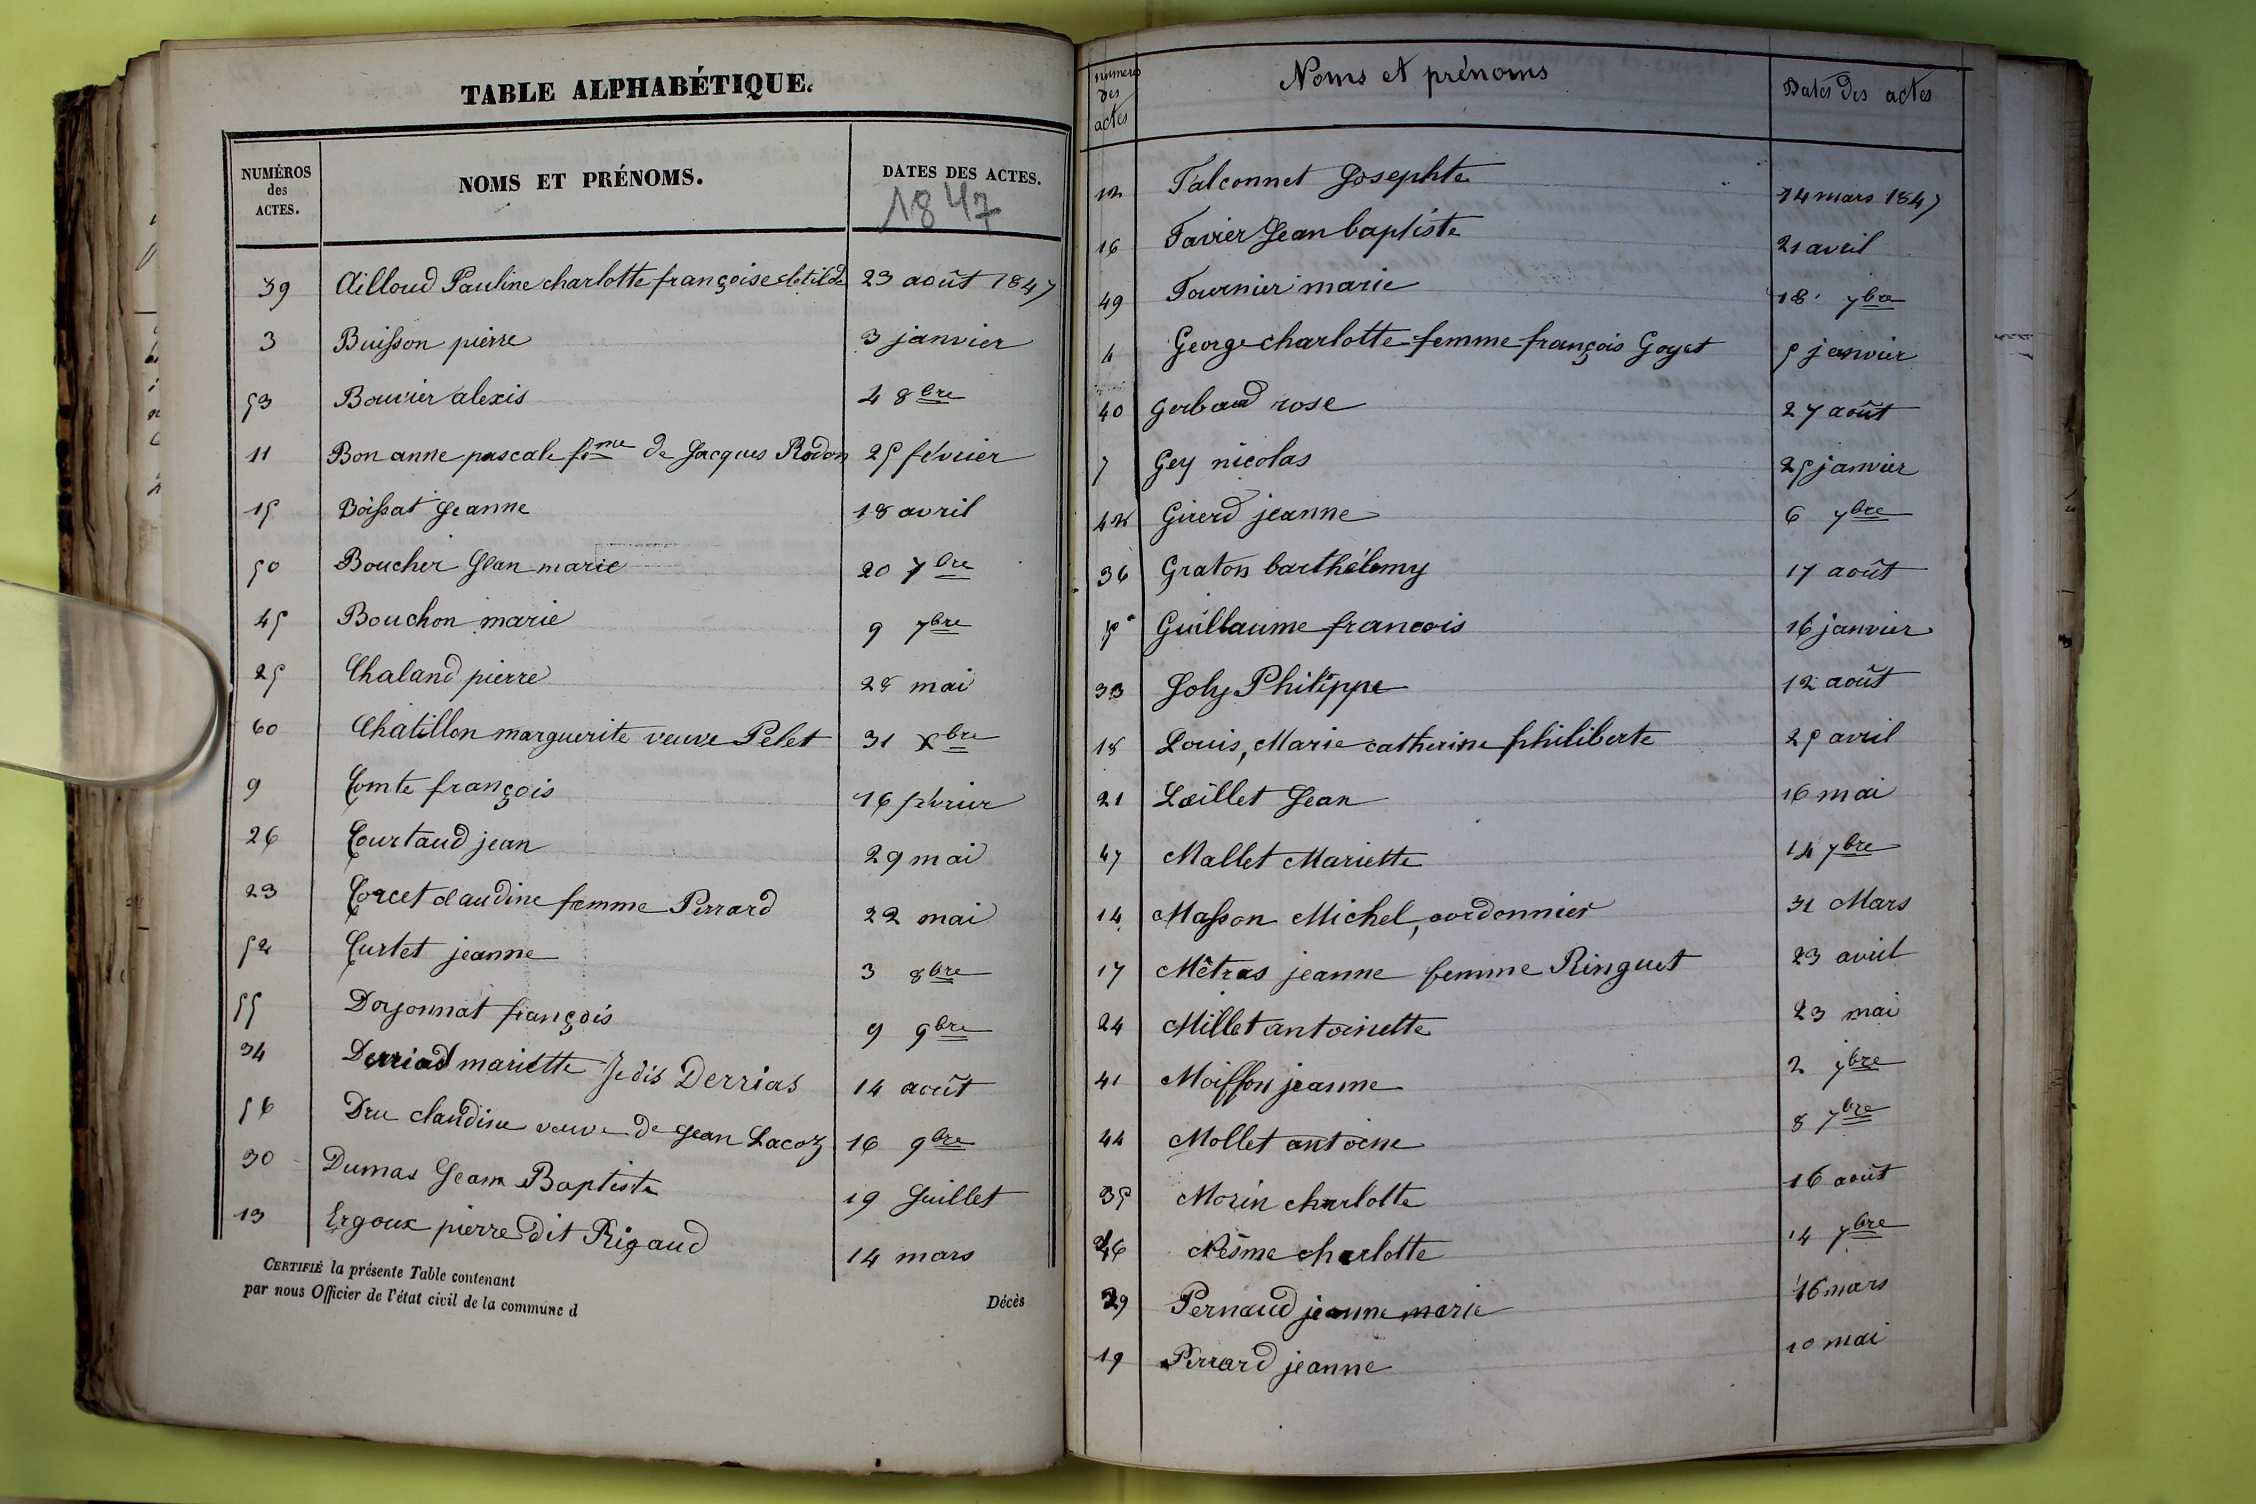 TABLE ALPHABÉTIQUE.
NUMÉROS des ACTES. NOMS ET PRÉNOMS. DATES DES ACTES.
1847
39 Ailloud Pauline charlotte françoise clotilde 23 août 1847
3 Buisson pierre 3 janvier
53 Bouvier alexis 4 8bre
11 Bon anne pascale fme de Jacques Rodon 25 février
15 Boissat Jeanne 18 avril
50 Boucher Jean marie 20 7bre
45 Bouchon marie 9 7bre
25 Chaland pierre 28 mai
60 Chatillon marguerite veuve Pelet 31 Xbre
9 Comte françois 16 février
26 Courtaud jean 29 mai
23 Corcet claudine femme Perrard 22 mai
52 Curtet jeanne 3 8bre
55 Dorjonnat françois 9 9bre
34 Derriad mariette Je dis Derrias 14 août
56 Dru claudine veuve de Jean Lacoz 16 9bre
30 Dumas Jean Baptiste 19 Juillet
13 Ergoux pierre dit Rigaud 14 mars
CERTIFIÉ la présente Table contenant
par nous Officier de l'état civil de la commune d
Décès
numeros des actes Noms et prénoms Dates des actes
12 Falconnet Josephte 14 mars 1847
16 Favier Jean baptiste 21 avril
49 Fournier marie 18 7bre
4 George charlotte femme françois Goyet 5 janvier
40 Gerbaud rose 27 août
7 Gey nicolas 25 janvier
42 Girerd jeanne 6 7bre
36 Graton barthélemy 17 août
5 Guillaume francois 16 janvier
33 Joly Philippe 12 août
18 Louis, Marie catherine philiberte 25 avril
21 Lœillet Jean 16 mai
47 Mallet Mariette 14 7bre
14 Masson Michel, cordonnier 31 Mars
17 Mêtras jeanne femme Ringuet 23 avril
24 Millet antoinette 23 mai
41 Moiffon jeanne 2 7bre
44 Mollet antoine 8 7bre
35 Morin charlotte 16 août
46 Nesme charlotte 14 7bre
29 Pernaud jeanne marie 16 mars
19 Perrard jeanne 10 mai